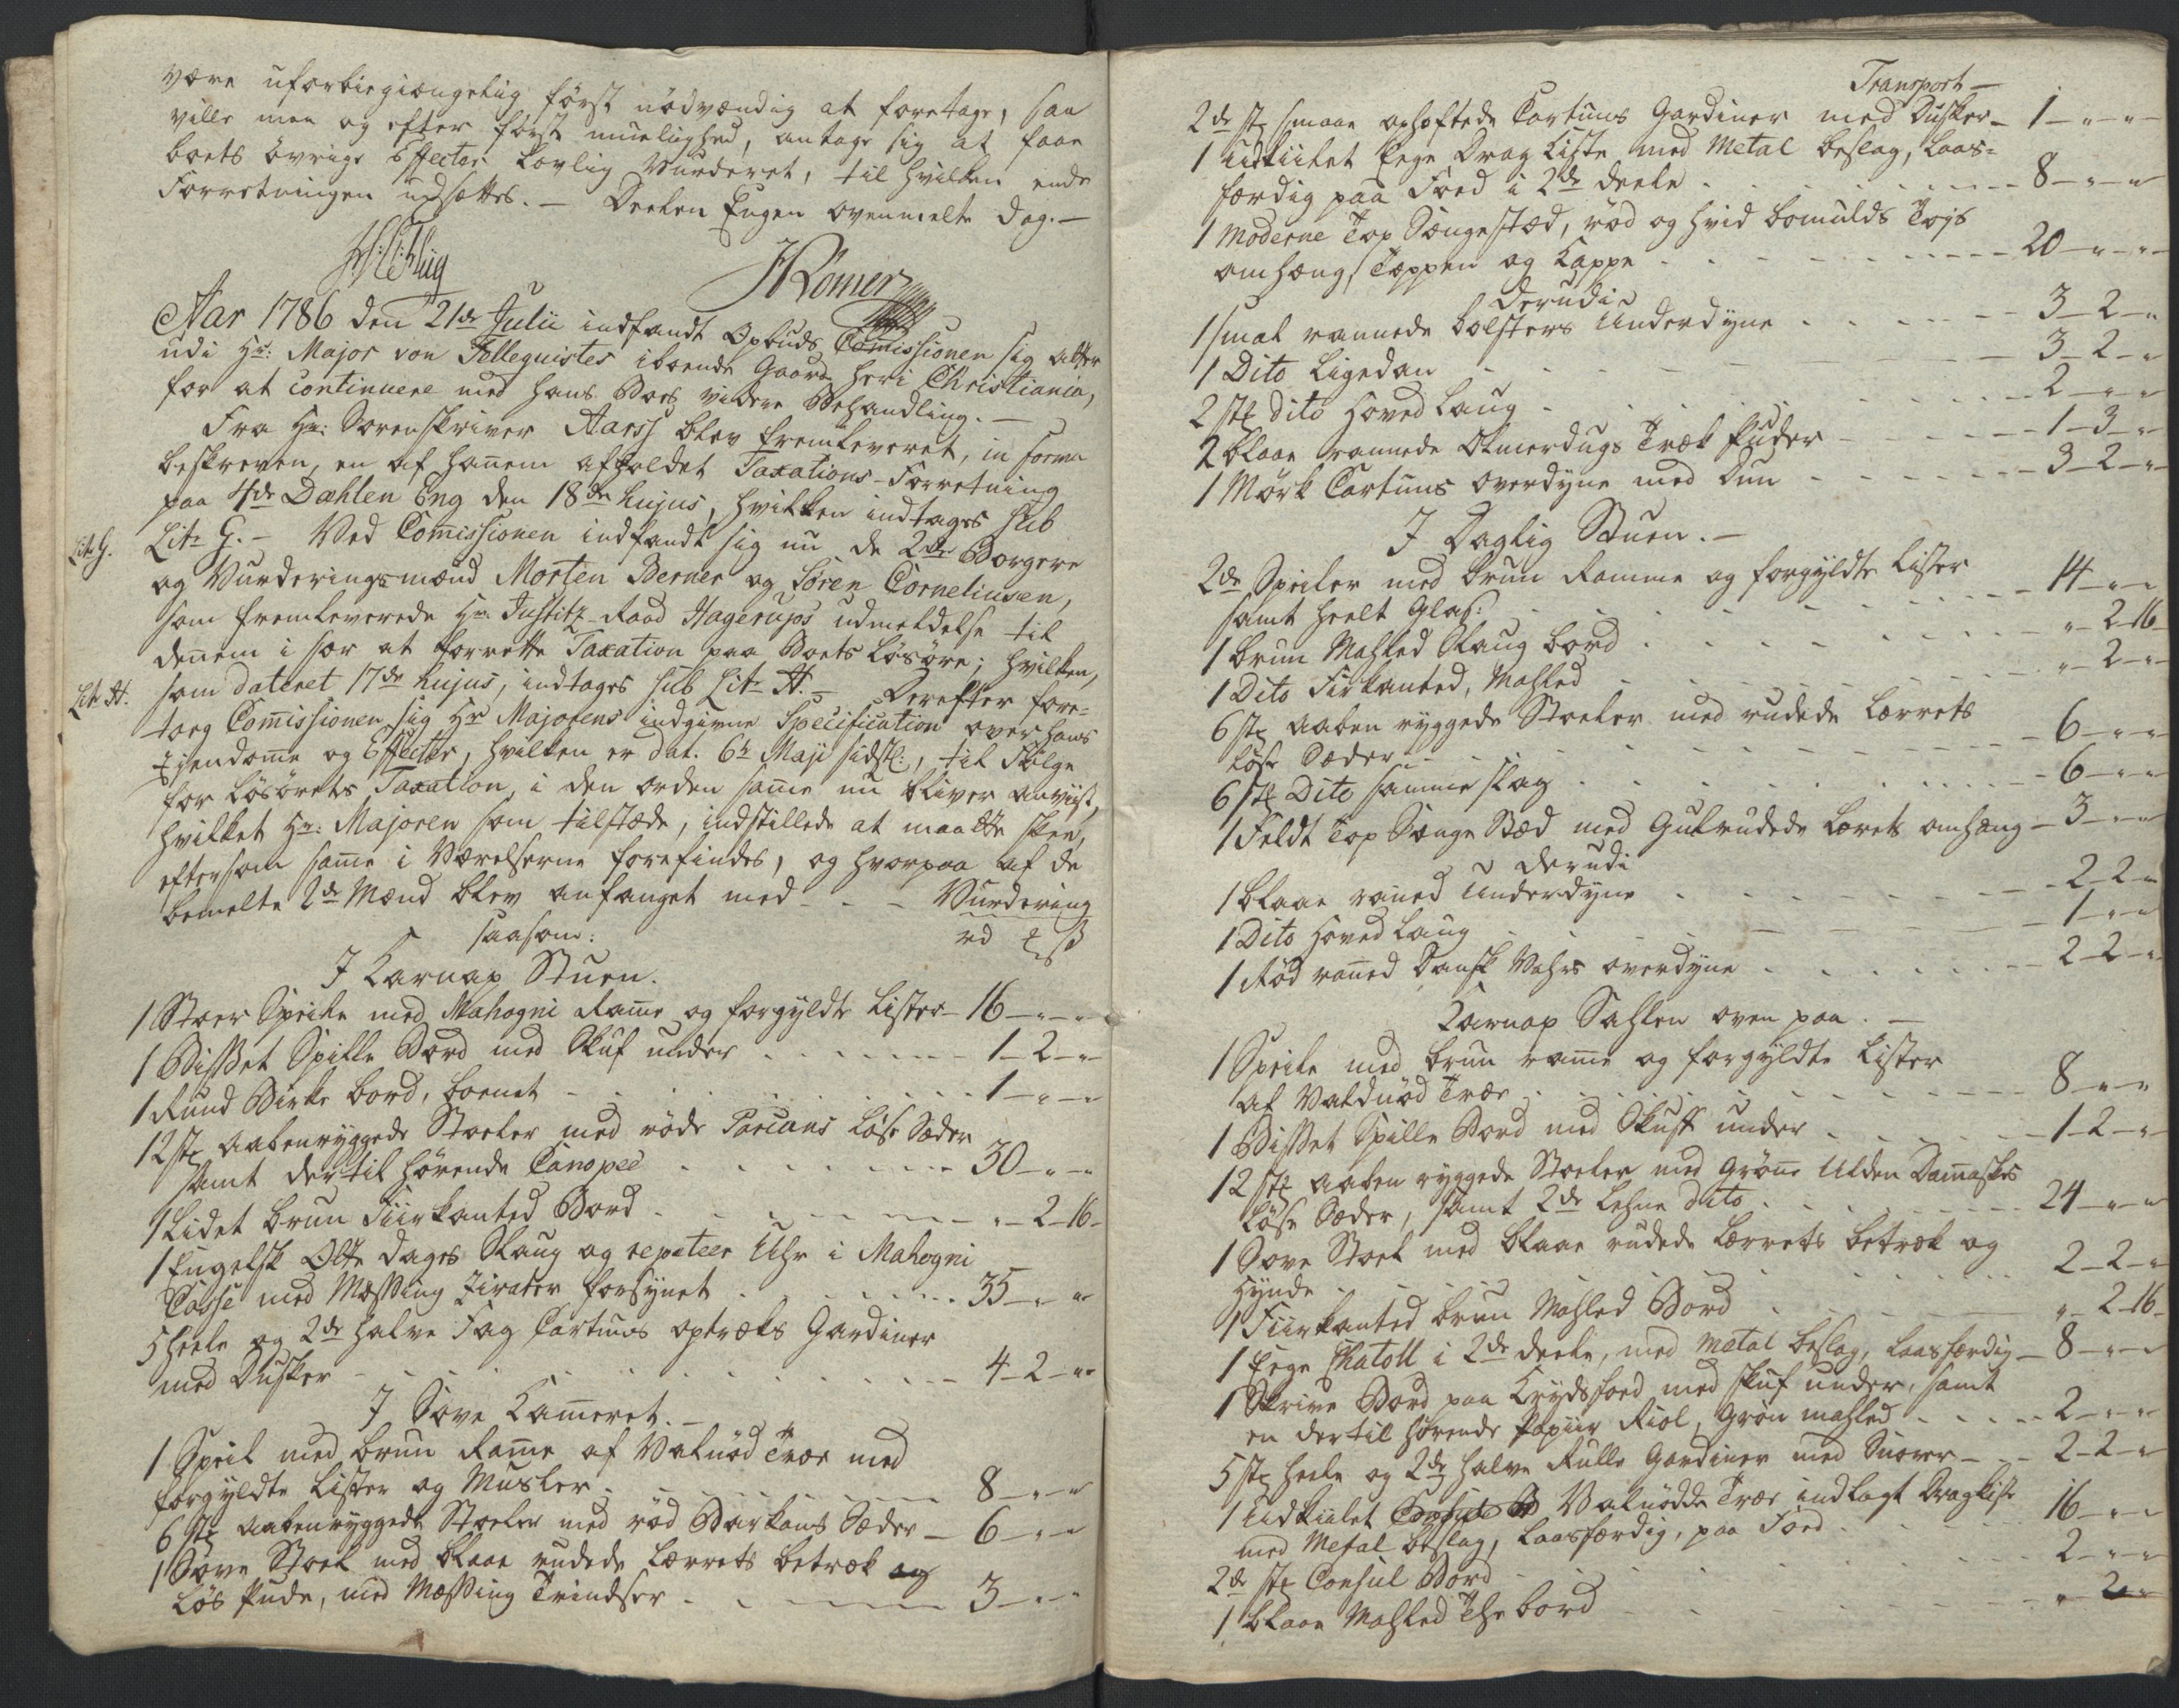 være uforbiegiængelig först nödvændig at foretage, saa
ville man og efter först muelighed, antage sig at faae
boets övrige Effecter lovlig vurderet, til hvilken ende
Forretningen udsættes. — Deelen Engen ovenmelte Dag. —
JRömer
Aar 1786 den 21de Julii indfandt Opbuds Comissionen sig atter
udi Hr: Major von Tellequistes iboende Gaard her i Christiania,
for at continuere med hans Boes videre Behandling. —
Fra Hr: Sorenskriver Aars blev fremleveret, in forma
beskreven, en af hanem afholdet Taxations-Forretning
paa 4de Dæhlen Eng den 18de hujus, hvilken indtages sub
Litr. G.
Litr G. — Ved Comissionen indfandt sig nu de 2de Borgere
og Vurderingsmænd Morten Berner og Sören Corneliusen,
som fremleverede Hr. Justitz-Raad Hagerups udmeldelse til
denem i sær at forrette Taxation paa Boets Lösöre; hvilken,
Litr. H.
som dateret 17de hujus, indtages sub Litr H. — Derefter fore-
tog Comissionen sig Hr Majorens indgivne Specification over hans
Ejendome og Effecter, hvilken er dat. 6te Maji sidstl:, til Fölge
for Lösörets Taxation, i den orden same nu bliver anviist,
hvilket Hr: Majoren som tilstæde, indstillede at maatte skee,
eftersom same i Værelserne forefindes, og hvorpaa af de
bemelte 2de Mænd blev anfanget med - - - Vurdering
saasom:
rd ₰ ß
I Karnap Stuen.
1 Stoer Speile med Mahogni Rame og forgyldte Lister - 16 - " - "
1 Bisset Spille Bord med Skuf under - 1 - 2 - "
1 Rund Birke bord, boenet - 1 - " - "
12 stk aabenryggede Stoeler med röde Parcans löse Sæder
samt dertil hörende Canopee - 30 - " - "
1 Lidet brun Fiirkanted Bord - " - 2 - 16 -
1 Engelsk Otte dages Slaug og repeteer Uhr i Mahogni
Casse med Messing Zirater forsynet - 35 - " - "
5 heele og 2de halve Fag Cartuns optræks Gardiner
med Dusker - 4 - 2 - "
I Sove Kameret. —
1 Speil med brun Rame af Valnöd Træe med
forgyldte Lister og Musler - 8 - " - "
6 stk aabenryggede Stoeler med röd Barkans Sæder - 6 - " - "
1 Sove Stoel med blaae rudede Lærrets betræk og
lös Pude, med Messing Trindser - 3 - " - "
Transport —
2de stk smaae ophæftede Cartuns Gardiner med Dusker - 1 - " - "
1 Udkiilet Eege Drag Kiste med Metal beslag, Laas-
færdig paa Foed i 2de deele - 8 - " - "
1 Moderne Top Sengestæd, röd og hvid bomulds Töjs
omhæng, Tæppen og Kappe - 20 - " - "
derudi
1 smal rannede bolsters Underdyne - 3 - 2 - "
1 Dito Ligedan - 3 - 2 - "
2 stk dito Hoved Laug - 2 - " - "
2 blaae rannede Olmerdugs Træk Puder - 1 - 3 - "
1 Mörk Cartuns overdyne med Duun - 3 - 2 - "
I Daglig Stuen. —
2de Speiler med brun Ramme og forgyldte Lister
samt heelt Glas: - 14 - " - "
1 brun Mahled Slaug bord - " - 2 - 16
1 Dito Firkanted, Mahled - " - 2 - "
6 stk aaben ryggede Stoeler med rudede Lærrets
löse Sæder - 6 - " - "
6 stk Dito samme slag - 6 - " - "
1 Feldt Top Senge Stæd med Gulrudede Lærets omhæng - 3 - " - "
derudi
1 blaae raned Underdyne - 2 - 2 - "
1 Dito Hoved Laug - 1 - " - "
1 Röd raned Dansk Vahrs overdyne - 2 - 2 - "
Karnap Sahlen oven paa. —
1 Speile med brun rame og forgyldte Lister
af Valdnöd Træe - 8 - " - "
1 Bisset Spille Bord med Skuff under - 1 - 2 - "
12 stk aaben ryggede Stoeler med gröne Ulden Damaskes
löse Sæder, samt 2de Lehne dito - 24 - " - "
1 Sove Stoel med blaae rudede Lærrets betræk og
Hynde - 2 - 2 - "
1 Fiirkanted brun Mahled Bord - " - 2 - 16
1 Eege Chatoll i 2de deele, med Metal beslag, Laasfærdig - 8 - " - "
1 Skrive Bord paa Krydsfoed med skuf under, samt
en dertil hörende Papiir Riol, grön mahled - 2 - " - "
5 stk heele og 2de halve Rulle Gardiner med Snorer - 2 - 2 - "
1 Udkiilet Valnödde Træe indlagt Dragkiste
med Metal beslag, Laasfærdig, paa Foed - 16 - " - "
2de stk Consul Bord - 2 - " - "
1 blaae Mahled The bord - " - 2 - "